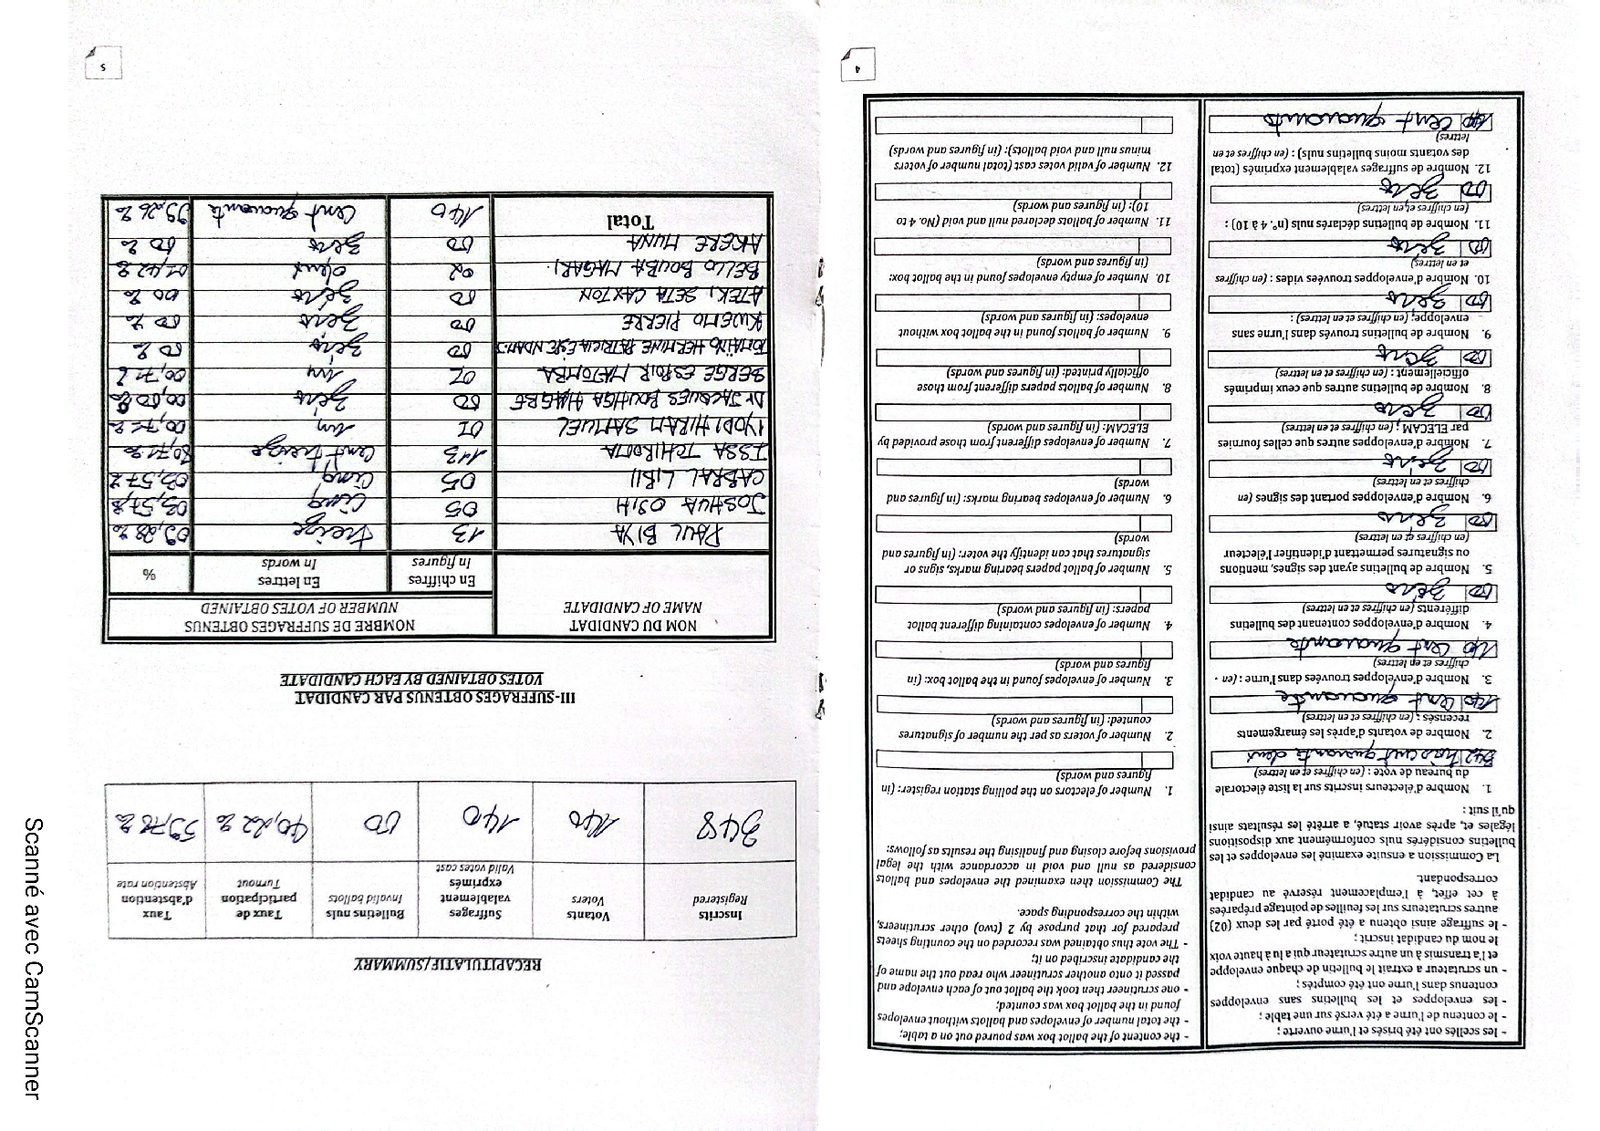 4
- les scellés ont été brisés et l'urne ouverte ;
- le contenu de l'urne a été versé sur une table ;
- les enveloppes et les bulletins sans enveloppes
contenus dans l'urne ont été comptés ;
- un scrutateur a extrait le bulletin de chaque enveloppe
et l'a transmis à un autre scrutateur qui a lu à haute voix
le nom du candidat inscrit ;
- le suffrage ainsi obtenu a été porté par les deux (02)
autres scrutateurs sur les feuilles de pointage préparées
à cet effet, à l'emplacement réservé au candidat
correspondant.
La Commission a ensuite examiné les enveloppes et les
bulletins considérés nuls conformément aux dispositions
légales et, après avoir statué, a arrêté les résultats ainsi
qu'il suit :
1. Nombre d'électeurs inscrits sur la liste électorale
du bureau de vote : (en chiffres et en lettres)
342 trois cent quarante deux
2. Nombre de votants d'après les émargements
recensés : (en chiffres et en lettres)
140 Cent quarante
3. Nombre d'enveloppes trouvées dans l'urne : (en
chiffres et en lettres)
140 Cent quarante
4. Nombre d'enveloppes contenant des bulletins
différents (en chiffres et en lettres)
00 zéro
5. Nombre de bulletins ayant des signes, mentions
ou signatures permettant d'identifier l'électeur
(en chiffres et en lettres)
00 zéro
6. Nombre d'enveloppes portant des signes (en
chiffres et en lettres)
00 zéro
7. Nombre d'enveloppes autres que celles fournies
par ELECAM ; (en chiffres et en lettres)
00 zéro
8. Nombre de bulletins autres que ceux imprimés
officiellement : (en chiffres et en lettres)
00 zéro
9. Nombre de bulletins trouvés dans l'urne sans
enveloppe; (en chiffres et en lettres) :
00 zéro
10. Nombre d'enveloppes trouvées vides : (en chiffres
et en lettres)
00 zéro
11. Nombre de bulletins déclarés nuls (n°. 4 à 10) :
(en chiffres et en lettres)
00 zéro
12. Nombre de suffrages valablement exprimés (total
des votants moins bulletins nuls) : (en chiffres et en
lettres)
140 Cent quarante
- the content of the ballot box was poured out on a table;
- the total number of envelopes and ballots without envelopes
found in the ballot box was counted;
- one scrutineer then took the ballot out of each envelope and
passed it onto another scrutineer who read out the name of
the candidate inscribed on it;
- The vote thus obtained was recorded on the counting sheets
prepared for that purpose by 2 (two) other scrutineers,
within the corresponding space.
The Commission then examined the envelopes and ballots
considered as null and void in accordance with the legal
provisions before closing and finalising the results as follows:
1. Number of electors on the polling station register: (in
figures and words)
2. Number of voters as per the number of signatures
counted: (in figures and words)
3. Number of envelopes found in the ballot box: (in
figures and words)
4. Number of envelopes containing different ballot
papers: (in figures and words)
5. Number of ballot papers bearing marks, signs or
signatures that can identify the voter: (in figures and
words)
6. Number of envelopes bearing marks: (in figures and
words)
7. Number of envelopes different from those provided by
ELECAM: (in figures and words)
8. Number of ballots papers different from those
officially printed: (in figures and words)
9. Number of ballots found in the ballot box without
envelopes: (in figures and words)
10. Number of empty envelopes found in the ballot box:
(in figures and words)
11. Number of ballots declared null and void (No. 4 to
10): (in figures and words)
12. Number of valid votes cast (total number of voters
minus null and void ballots): (in figures and words)
5
RECAPITULATIF/SUMMARY
Inscrits Registered Votants Voters Suffrages valablement exprimés Valid votes cast Bulletins nuls Invalid ballots Taux de participation Turnout Taux d'abstention Abstention rate
348 140 140 00 40,22% 59,78%
III-SUFFRAGES OBTENUS PAR CANDIDAT
VOTES OBTAINED BY EACH CANDIDATE
NOM DU CANDIDAT NOMBRE DE SUFFRAGES OBTENUS
NAME OF CANDIDATE NUMBER OF VOTES OBTAINED
En chiffres En lettres %
In figures In words
PAUL BIYA 13 treize 09,28%
JOSHUA OSIH 05 Cinq 03,57%
CABRAL LIBII 05 Cinq 03,57%
ISSA TCHIROMA 113 Cent treize 80,71%
IYODI HIRAM SAMUEL 01 Un 00,71%
Dr JACQUES BOUHGA HAGBE 00 zéro 00,00%
SERGE ESPOIR MATOMBA 01 un 00,71%
TOMAÏNO HERMINE PATRICIA 00 zéro 00%
KWEMO PIERRE 00 zéro 00%
ATEKI SETA CAXTON 00 zéro 00%
BELLO BOUBA MAIGARI 02 deux 01,42%
AKERE MUNA 00 zéro 00%
Total 140 Cent quarante 99,26%
Scanné avec CamScanner